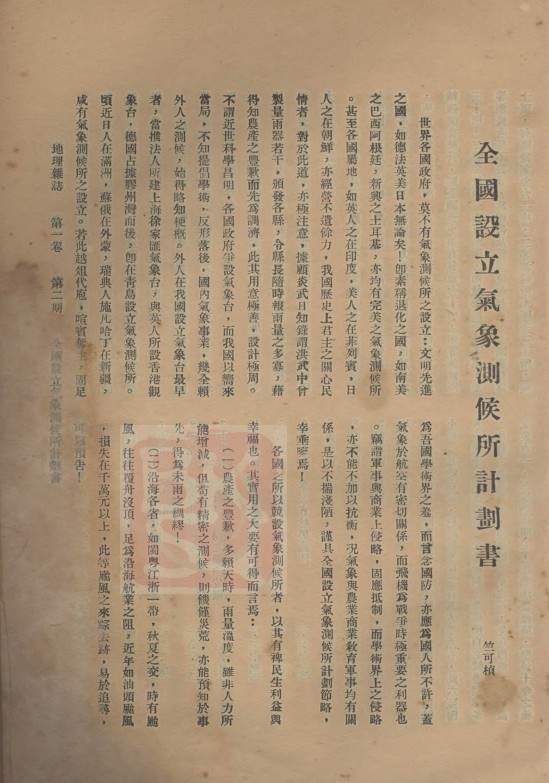 全國設立氣象測候所計劃書
竺可楨
世界各國政府，莫不有氣象測候所之設立：文明先進
之國，如德法英美日本無論矣！卽素稱退化之國，如南美
之巴西阿根廷，新興之土耳基，亦均有完美之氣象測候所
。甚至各國屬地，如英人之在印度，美人之在非列賓，日
人之在朝鮮，亦經營不遺餘力，我國歷史上君主之關心民
情者，對於此道，亦極注意，據顧炎武日知錄謂洪武中曾
製量雨器若干，頒發各縣，令縣長隨時報雨量之多寡，藉
得知農產之豐歉而先爲調濟，此其用意極善，設計極周。
不謂近世科學昌明，各國政府爭設氣象台，而我國以嚮來
當局，不知提倡學術，反形落後，國內氣象事業，幾全賴
外人之測候，始得略知梗概。外人在我國設立氣象台最早
者，當推法人所建上海徐家匯氣象台，與英人所設香港觀
象台，德國占據膠州灣而後，卽在靑島設立氣象測候所。
頃近日人在滿洲，蘇俄在外蒙，瑞典人施凡哈丁在新疆，
咸有氣象測候所之設立。若此越俎代庖，喧賓奪主，固足
爲吾國學術界之羞，而言念國防，亦應爲國人所不許，蓋
氣象於航空有密切關係，而飛機爲戰爭時極重要之利器也
。竊謂軍事與商業上侵略，固應抵制，而學術界上之侵略
，亦不能不加以抗衡，况氣象與農業商業敎育軍事均有關
係，是以不揣淺陋，謹具全國設立氣象測候所計劃節略，
幸垂察焉！
各國之所以競設氣象測候所者，以其有裨民生利益與
幸福也。其實用之大要有可得而言焉：
（一）農產之豐歉，多賴天時，雨量溫度，雖非人力所
能增減，但苟有精密之測候，則饑饉災荒，亦能預知於事
先，得爲未雨之綢繆！
（二）沿海各省，如閩粤江浙一帶，秋夏之交，時有颱
風，往往覆舟沒頂，足爲沿海航業之阻，近年如汕頭颱風
，損失在千萬元以上，此等颱風之來踪去跡，易於追尋，
可以預告！
地理雜誌　第一卷　第二期　全國設立氣象測候所計劃書